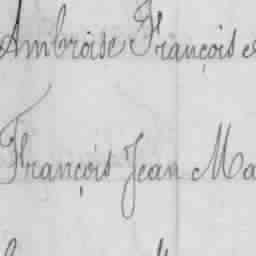 Ambroise François
François Jean Ma